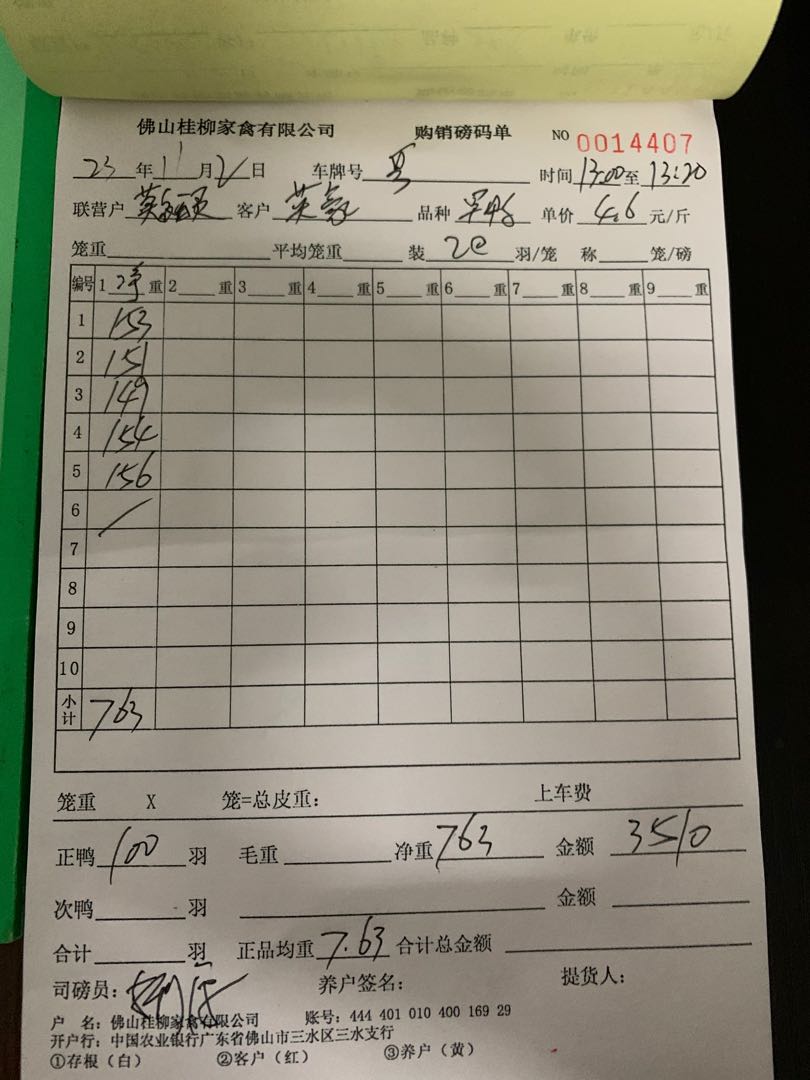 佛山桂柳家禽有限公司 购销磅码单 NO 0014407
23年11月2日 车牌号 时间13:00至13:20
联营户 客户 品种 单价 4.6 元/斤
笼重 平均笼重 装 20 羽/笼 称 笼/磅
编号 1 净 重 2 重 3 重 4 重 5 重 6 重 7 重 8 重 9 重
1 153
2 151
3 149
4 154
5 156
6 /
7
8
9
10
小计 763
笼重 X 笼=总皮重: 上车费
正鸭 100 羽 毛重 净重 763 金额 3510
次鸭 羽 金额
合计 羽 正品均重 7.63 合计总金额
司磅员: 养户签名: 提货人:
户 名: 佛山桂柳家禽有限公司 账号: 444 401 010 400 169 29
开户行: 中国农业银行广东省佛山市三水区三水支行
①存根(白) ②客户(红) ③养户(黄)